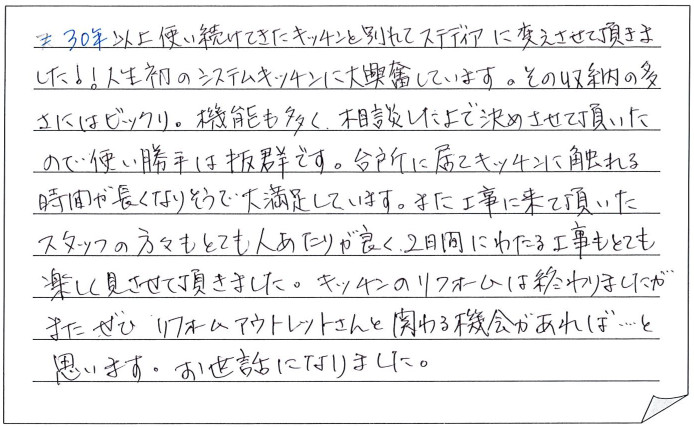 30年以上使い続けてきたキッチンと別れてステディアに変えさせて頂きま
した!!人生初のシステムキッチンに大興奮しています。その収納の多
さにはビックリ。機能も多く、相談した上で決めさせて頂いた
ので使い勝手は抜群です。台所に居てキッチンに触れる
時間が長くなりそうで大満足しています。また工事に来て頂いた
スタッフの方々もとても人あたりが良く、2日間にわたる工事もとても
楽しく見させて頂きました。キッチンのリフォームは終わりましたが
またぜひリフォームアウトレットさんと関わる機会があれば…と
思います。お世話になりました。